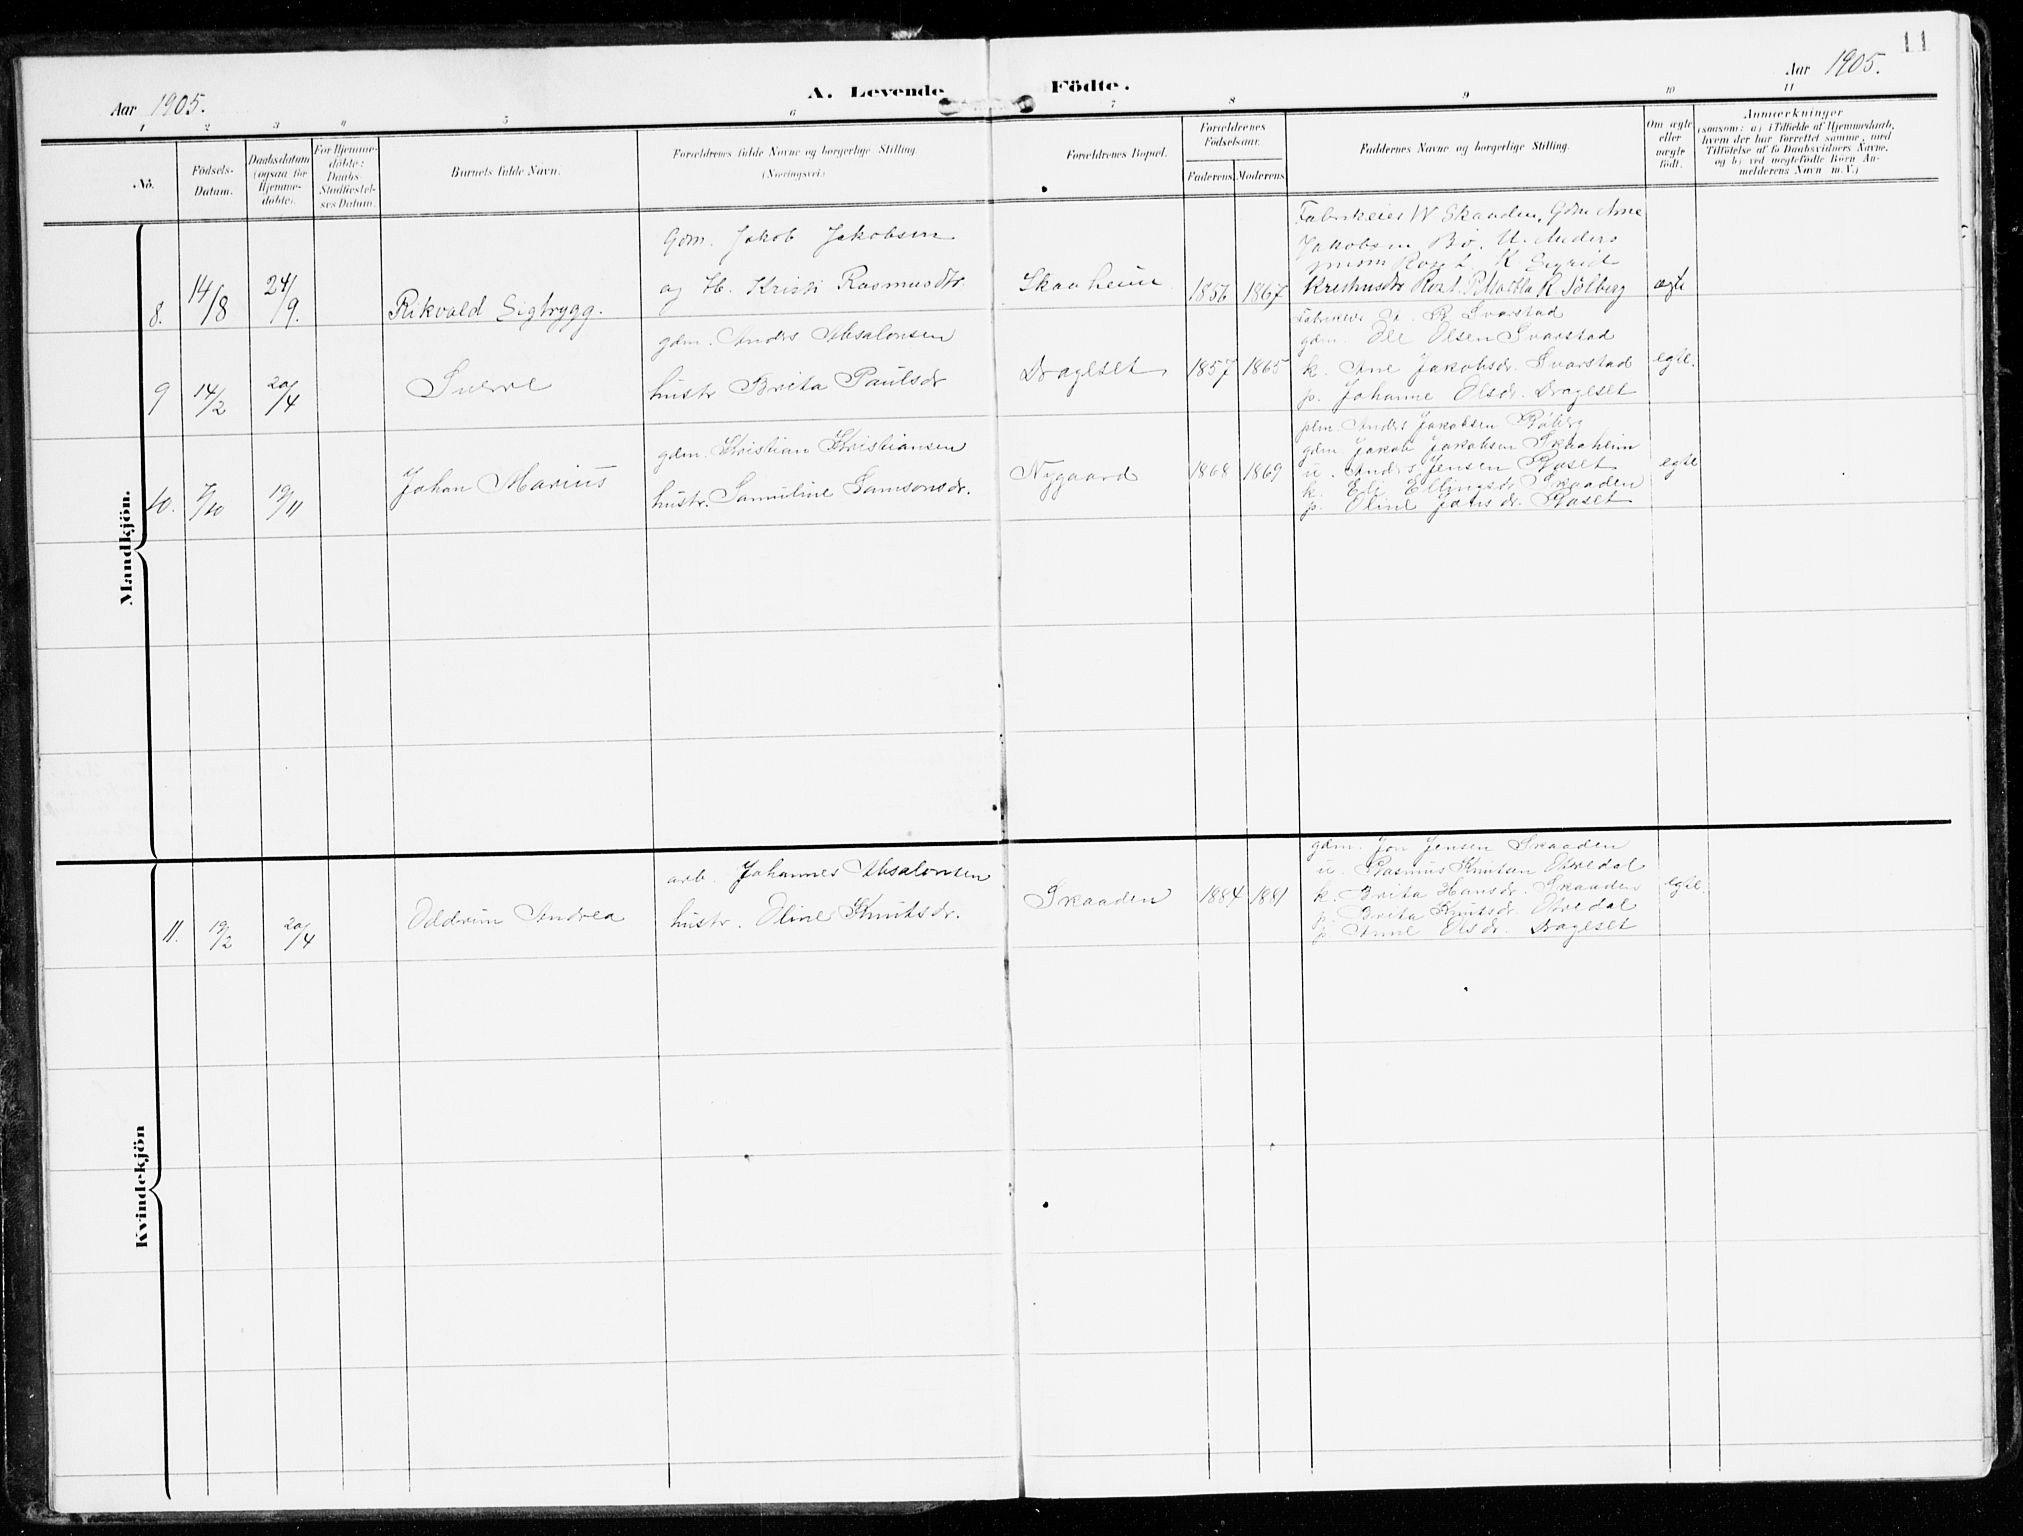 11
Aar 1905.
A. Levende Födte.
Aar 1905.
1 2 3 4 5 6 7 8 9 10 11
No.
Födsels-Datum.
Daabsdatum (ogsaa for Hjemme-döbte).
For Hjemme-döbte: Daabs-Stadfæstel-ses Datum.
Barnets fulde Navn.
Forældrenes fulde Navne og borgerlige Stilling. (Næringsvei)
Forældrenes Bopæl.
Forældrenes Födselsaar.
Faderens Moderens
Faddernes Navne og borgerlige Stilling.
Om ægte eller uægte födt.
Anmærkninger (saasom: a) i Tilfælde af Hjemmedaab, hvem der har forrettet samme, med Tilföielse af to Daabsvidners Navne, og b) ved uegtefödte Börn An-melderens Navn m. V.)
Mandkjön.
8. 14/8 24/9. Rikvald Sigtrygg.
Gdm. Jakob Jakobsen
og H. Kristi Rasmusdtr
Skaaheim 1856 1867
Fabrikeier W Skaaden, Gdm Arne
Jakobsen Bö. U. Anders
Roset K Sigrid
Roset. P. Martha R Solberg
ægte
9 14/2 20/4 Sverre
gdm. Anders Absalonsen
hustr Brita Paulsdr
Drageset 1857 1865
R Svarstad
gdm. Ole Olsen Svarstad
k. Ane Jakobsdr. Svarstad
p. Johanne Olsdr. Drageset
egte.
10. 7/10 19/11 Johan Marius
gdm. Kristian Kristiansen
hustr. Samuline Samsonsdr.
Nygaard 1868 1869
plm. Anders Jakobsen
gdm Jakob Jakobsen Skaaheim
u. Anders Jensen Raset
k. Eli Ellingsdr Skaaden
p. Oline Jansdr. Raset
egte
Kvindekjön
11. 19/2 20/4 Oddrun Andrea
arb. Johannes Absalonsen
hustr. Oline Knutsdr.
Skaaden 1884 1881
gdm. Jon Jensen Skaaden
u. Rasmus Knutsen
k. Brita Hansdr. Skaaden
p. Brita Knutsdr.
p. Anne Olsdr. Drageset
egte.